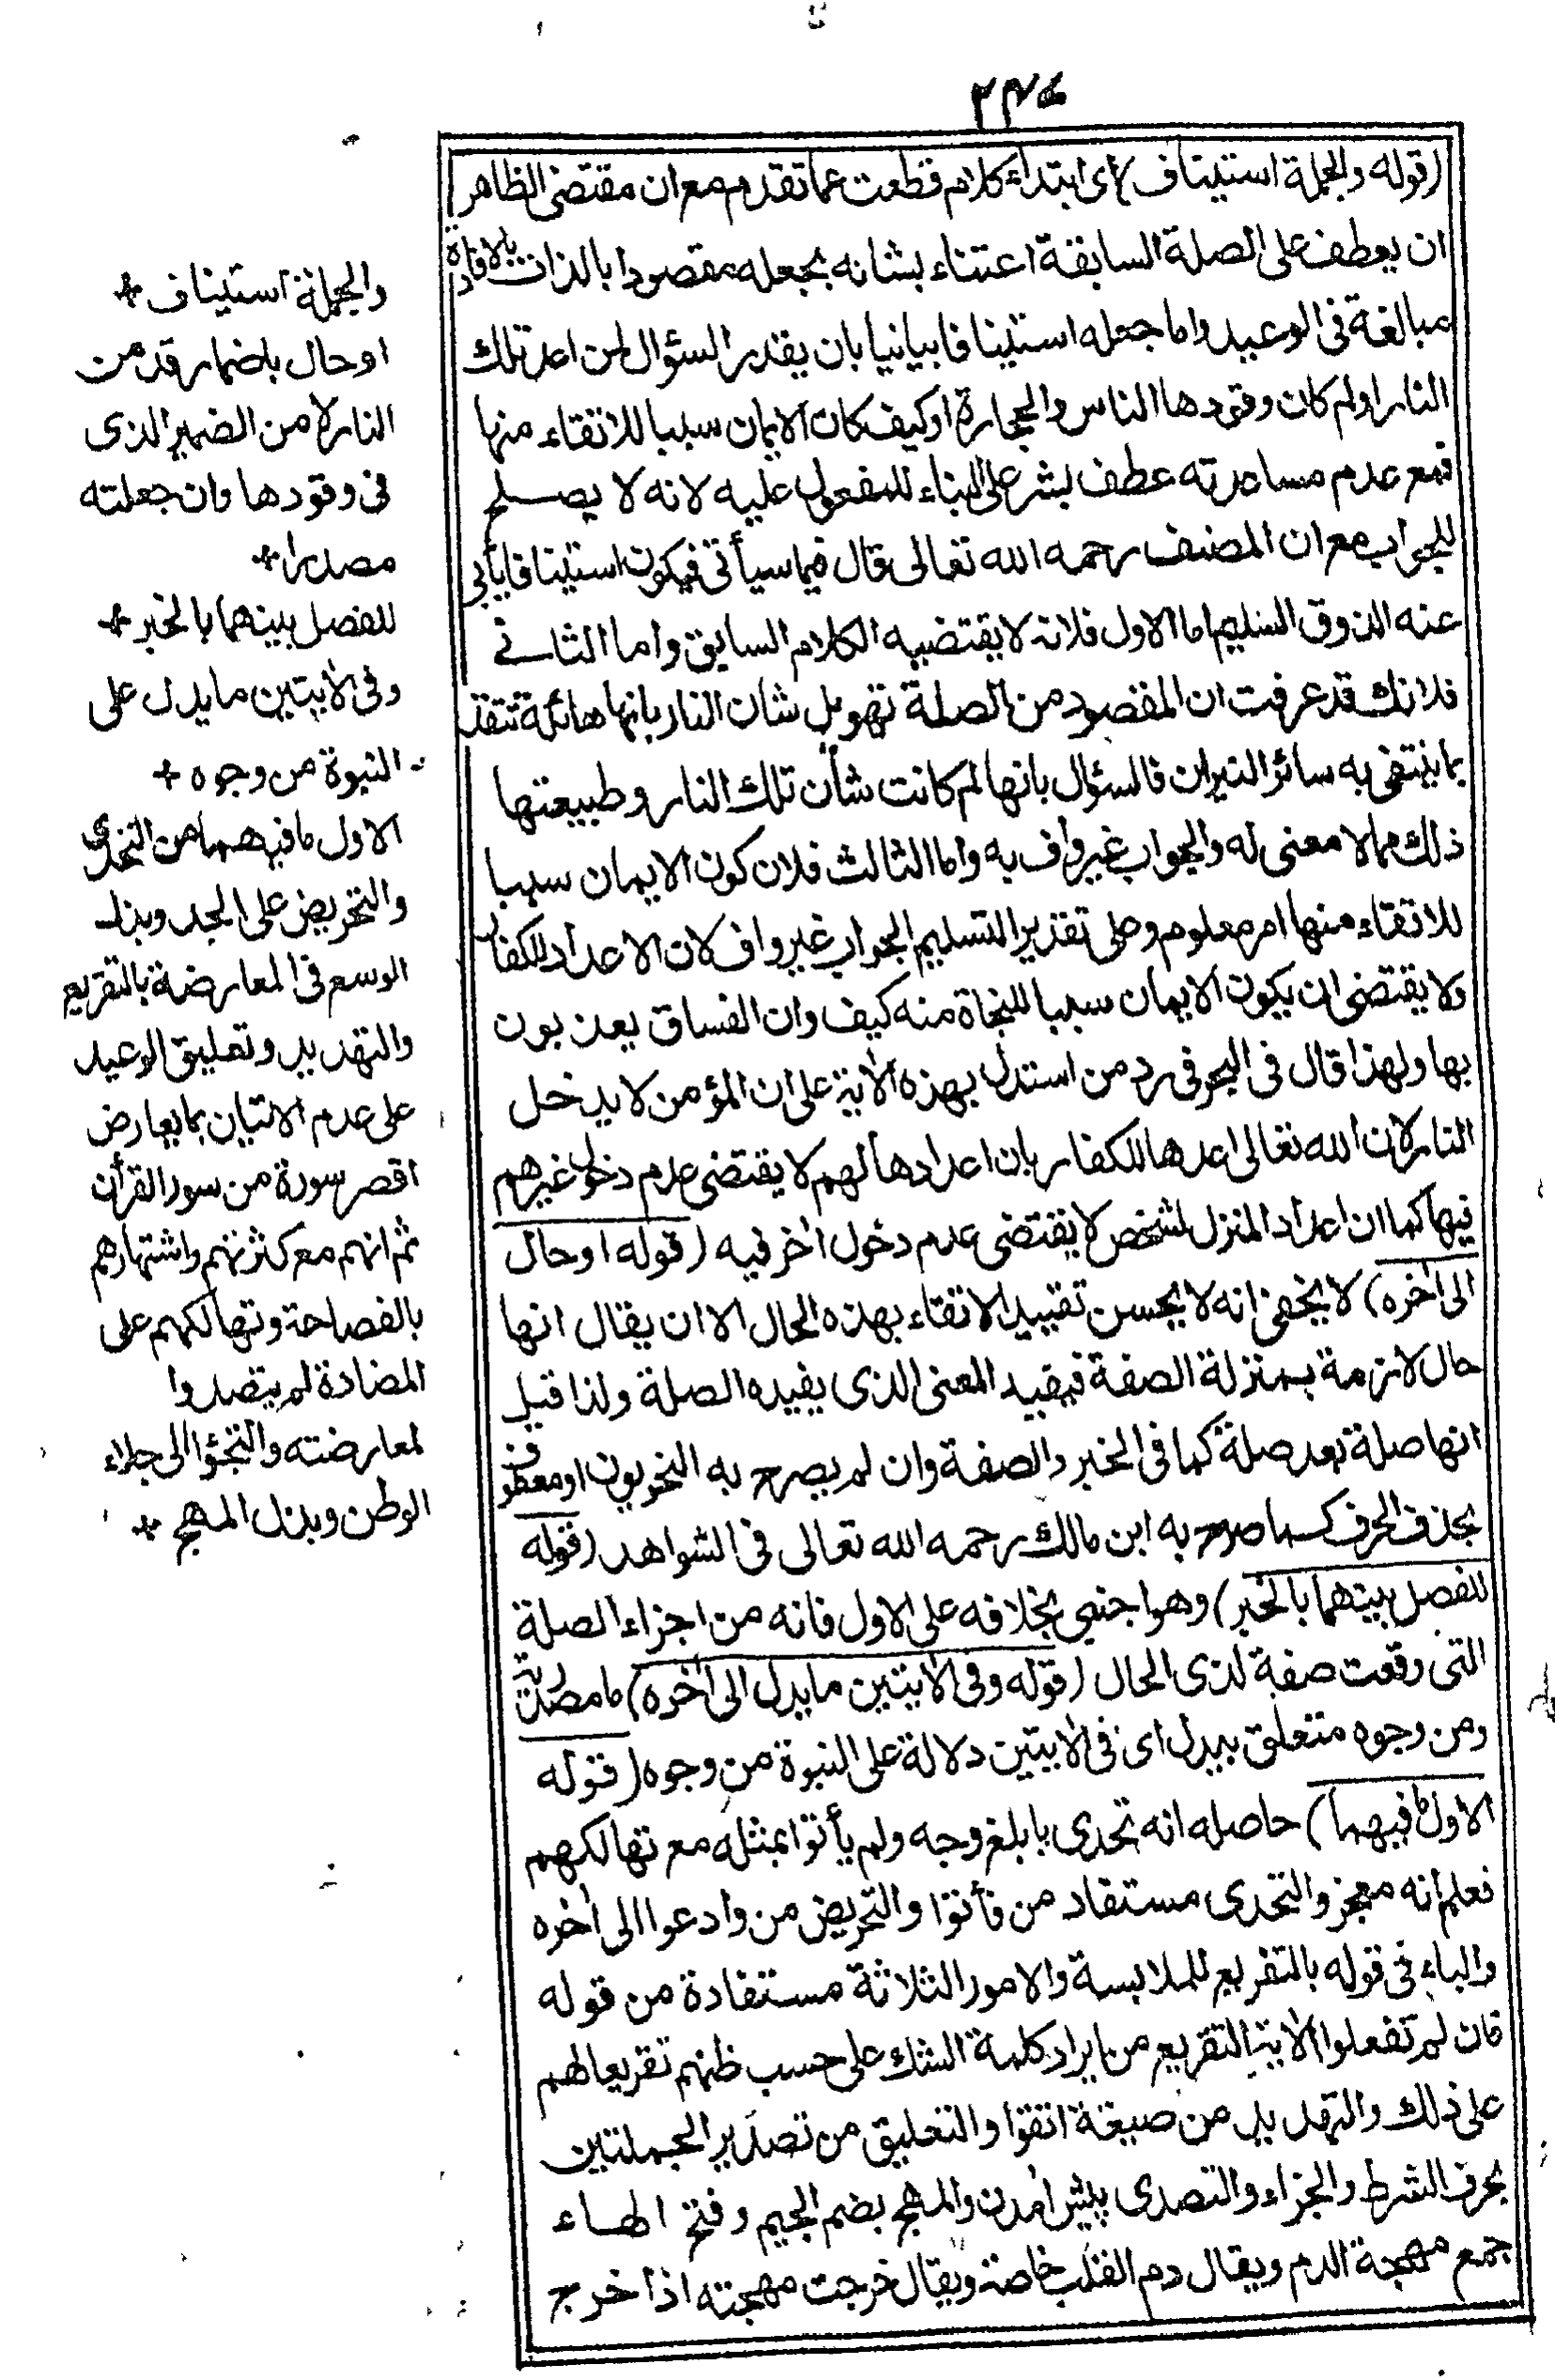 (قوله والجملة استيناف) اى ابتداء كلام قطعت عما تقدم مع ان مقتضى الظاهر
ان يعطف على الصلة السابقة اعتناء بشانه بجعله مقصودا بالذات بالافادة
مبالغة فى الوعيد واما جعله استينافا بيانيا بان يقدر السؤال لمن اعد تلك
النار او لم كان وقودها الناس والحجارة او كيف كان الايمان سببا للاتقاء منها
فمع عدم مساعدته عطف بشر على البناء للمفعول عليه لانه لا يصلح
للجواب مع ان المصنف رحمه الله تعالى قال فيما سيأتى فيكون استينافا يأبى
عنه الذوق السليم اما الاول فلانه لا يقتضيه الكلام السابق واما الثانى
فلانك قد عرفت ان المقصود من الصلة تهويل شان النار بانها هائلة تتقد
بما ينتفى به سائر النيران فالسؤال بانها لم كانت شأن تلك النار وطبيعتها
ذلك مما لا معنى له والجواب غير واف به واما الثالث فلان كون الايمان سببا
للاتقاء منها امر معلوم وعلى تقدير التسليم الجواب غير واف لان الاعداد للكفار
ولا يقتضى ان يكون الايمان سببا للنجاة منه كيف وان الفساق يعذبون
بها ولهذا قال فى البحر فى رد من استدل بهذه الآية على ان المؤمن لا يدخل
النار لان الله تعالى اعدها للكفار بان اعدادها لهم لا يقتضى عدم دخول غيرهم
فيها كما ان اعداد المنزل لشخص لا يقتضى عدم دخول آخر فيه (قوله او حال
الى آخره) لا يخفى انه لا يحسن تقييد الاتقاء بهذه الحال الا ان يقال انها
حال لازمة بمنزلة الصفة فيفيد المعنى الذى يفيده الصلة ولذا قيل
انها صلة بعد صلة كما فى الخبر والصفة وان لم يصرح به النحويون او معطوف
بحذف الحرف كما صرح به ابن مالك رحمه الله تعالى فى الشواهد (قوله
للفصل بينهما بالخبر) وهو اجنبى بخلافه على الاول فانه من اجزاء الصلة
التى وقعت صفة لذى الحال (قوله وفى الآيتين ما يدل الى آخره) ما مصدرية
ومن وجوه متعلق بيدل اى فى الآيتين دلالة على النبوة من وجوه (قوله
الاول ما فيهما) حاصله انه تحدى بابلغ وجه ولم يأتوا بمثله مع تهالكهم
فعلم انه معجز والتحدى مستفاد من فأتوا والتحريض من وادعوا الى آخره
والباء فى قوله بالتقريع للملابسة والامور الثلاثة مستفادة من قوله
فان لم تفعلوا الآية التقريع من ايراد كلمة الشك على حسب ظنهم تقريعا لهم
على ذلك والتهديد من صيغة اتقوا والتعليق من تصدير الجملتين
بحرف الشرط والجزاء والتصدى پيش آمدن والمهج بضم الجيم وفتح الهاء
جمع مهجة الدم ويقال دم القلب خاصة ويقال خرجت مهجته اذا خرج
والجملة استيناف
او حال باضمار قد من
النار لا من الضمير الذى
فى وقودها وان جعلته
مصدرا
للفصل بينهما بالخبر
وفى الآيتين ما يدل على
النبوة من وجوه
الاول ما فيهما من التحدى
والتحريض على الجد وبذل
الوسع فى المعارضة بالتقريع
والتهديد وتعليق الوعيد
على عدم الاتيان بما يعارض
اقصر سورة من سور القرآن
ثم انهم مع كثرتهم واشتهارهم
بالفصاحة وتهالكهم على
المضادة لم يتصدوا
لمعارضته والتجؤا الى جلاء
الوطن وبذل المهج